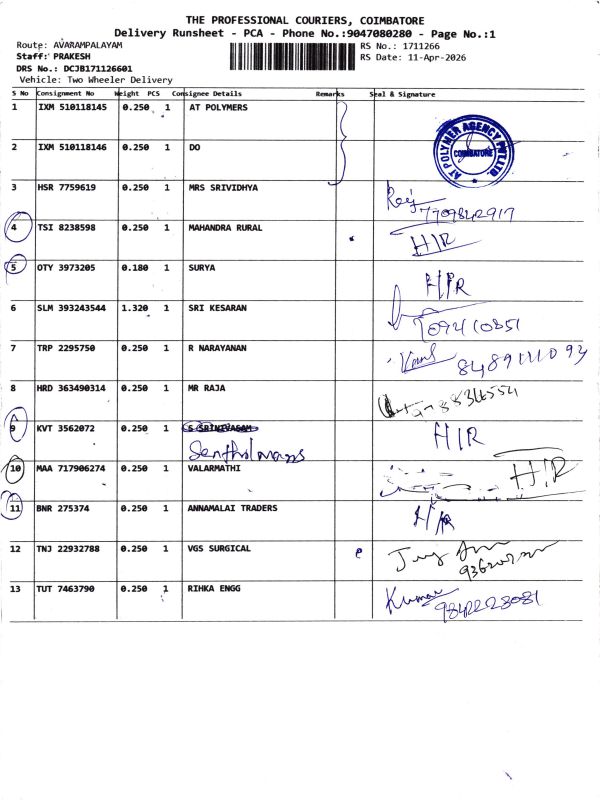 THE PROFESSIONAL COURIERS, COIMBATORE
Delivery Runsheet - PCA - Phone No.:9047080280 - Page No.:1
Route: AVARAMPALAYAM
RS No.: 1711266
Staff: PRAKESH
RS Date: 11-Apr-2026
DRS No.: DCJB171126601
Vehicle: Two Wheeler Delivery
S No Consignment No Weight PCS Consignee Details Remarks Seal & Signature
1 IXM 510118145 0.250 1 AT POLYMERS
AT POLYMER AGENCY PVT LTD. COIMBATORE
2 IXM 510118146 0.250 1 DO
3 HSR 7759619 0.250 1 MRS SRIVIDHYA
7709842917
4 TSI 8238598 0.250 1 MAHANDRA RURAL H/R
5 OTY 3973205 0.180 1 SURYA H/R
6 SLM 393243544 1.320 1 SRI KESARAN
7 TRP 2295750 0.250 1 R NARAYANAN
8 HRD 363490314 0.250 1 MR RAJA
9 KVT 3562072 0.250 1 S SRINIVASAM H/R
10 MAA 717906274 0.250 1 VALARMATHI H/R
11 BNR 275374 0.250 1 ANNAMALAI TRADERS H/R
12 TNJ 22932788 0.250 1 VGS SURGICAL
13 TUT 7463790 0.250 1 RIHKA ENGG Kumar
9842228081